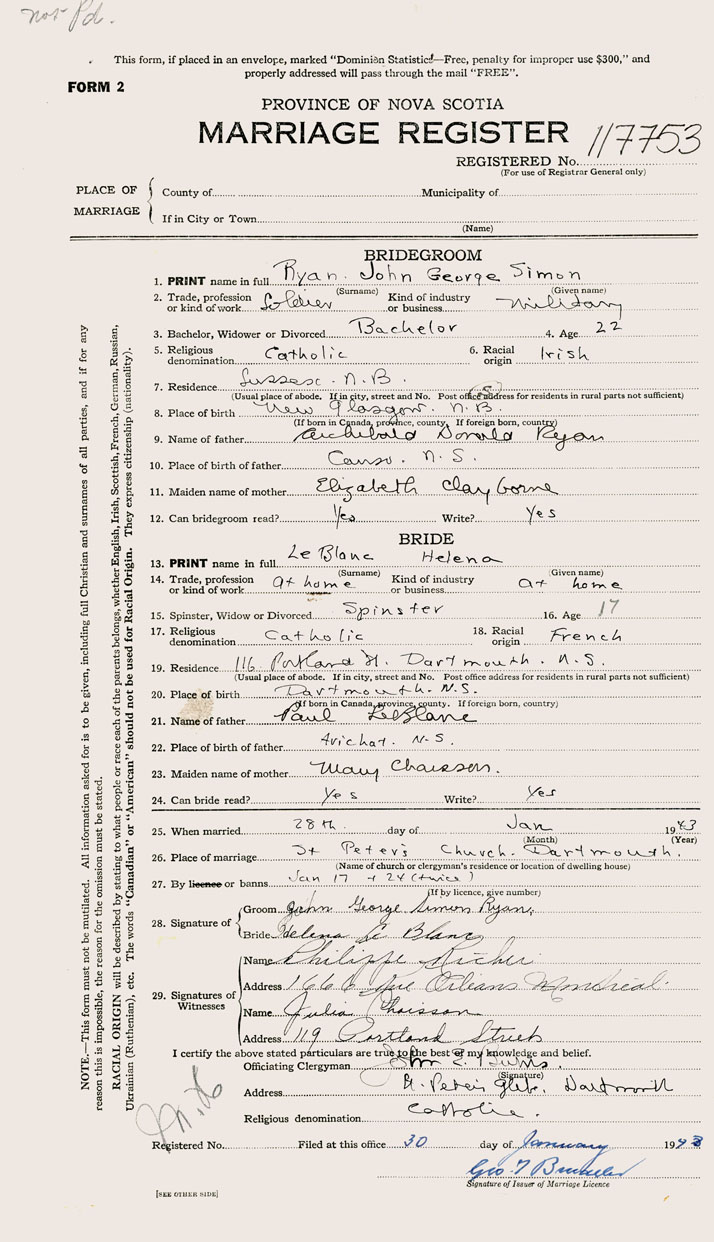 not Pd.
This form, if placed in an envelope, marked "Dominion Statistics—Free, penalty for improper use $300," and
properly addressed will pass through the mail "FREE".
FORM 2
PROVINCE OF NOVA SCOTIA
MARRIAGE REGISTER
117753
REGISTERED No.
(For use of Registrar General only)
PLACE OF MARRIAGE
County of Municipality of
If in City or Town
(Name)
BRIDEGROOM
1. PRINT name in full Ryan. John George Simon
(Surname) (Given name)
2. Trade, profession or kind of work Soldier Kind of industry or business military
3. Bachelor, Widower or Divorced Bachelor 4. Age 22
5. Religious denomination Catholic 6. Racial origin Irish
7. Residence Sussex. N.B.
(Usual place of abode. If in city, street and No. Post office address for residents in rural parts not sufficient)
8. Place of birth New Glasgow. N.B. S
(If born in Canada, province, county. If foreign born, country)
9. Name of father Archibald Donald Ryan
10. Place of birth of father Canso. N.S.
11. Maiden name of mother Elizabeth Clayborne
12. Can bridegroom read? Yes Write? Yes
BRIDE
13. PRINT name in full Le Blanc Helena
(Surname) (Given name)
14. Trade, profession or kind of work at home Kind of industry or business at home
15. Spinster, Widow or Divorced Spinster 16. Age 17
17. Religious denomination Catholic 18. Racial origin French
19. Residence 116 Portland St. Dartmouth. N.S.
(Usual place of abode. If in city, street and No. Post office address for residents in rural parts not sufficient)
20. Place of birth Dartmouth. N.S.
(If born in Canada, province, county. If foreign born, country)
21. Name of father Paul LeBlanc
22. Place of birth of father Arichat. N.S.
23. Maiden name of mother Mary Chaisson.
24. Can bride read? Yes Write? Yes
25. When married 28th day of Jan 1943
(Month) (Year)
26. Place of marriage St Peter's Church. Dartmouth.
(Name of church or clergyman's residence or location of dwelling house)
27. By licence or banns Jan 17 + 24 (twice)
(If by licence, give number)
28. Signature of
Groom John George Simon Ryan.
Bride Helena Le Blanc
29. Signatures of Witnesses
Name Philippe Richer
Address 1666 Orleans Montreal.
Name Julia Chaisson
Address 119 Portland Street
I certify the above stated particulars are true to the best of my knowledge and belief.
Officiating Clergyman
(Signature)
Address St. Peter's Glebe. Dartmouth
Religious denomination Catholic.
Registered No. Filed at this office 30 day of January 1943
Geo.
Signature of Issuer of Marriage Licence
[SEE OTHER SIDE]
NOTE.—This form must not be mutilated. All information asked for is to be given, including full Christian and surnames of all parties, and if for any
reason this is impossible, the reason for the omission must be stated.
RACIAL ORIGIN will be described by stating to what people or race each of the parents belongs, whether English, Irish, Scottish, French, German, Russian,
Ukrainian (Ruthenian), etc. The words "Canadian" or "American" should not be used for Racial Origin. They express citizenship (nationality).